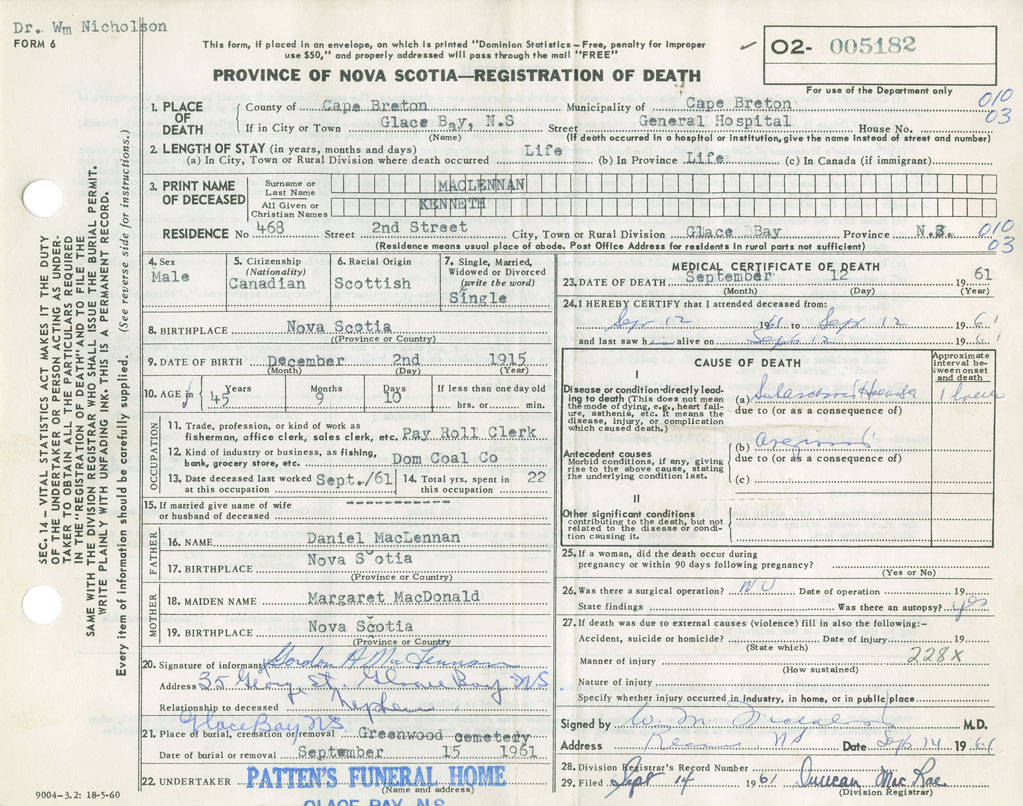 Dr. Wm Nicholson
FORM 6
This form, if placed in an envelope, on which is printed "Dominion Statistics—Free, penalty for improper
use $50," and properly addressed will pass through the mail "FREE"
02- 005182
PROVINCE OF NOVA SCOTIA—REGISTRATION OF DEATH
For use of the Department only
010
03
1. PLACE OF DEATH County of Cape Breton Municipality of Cape Breton
If in City or Town Glace Bay, N.S Street General Hospital House No.
(Name) (If death occurred in a hospital or institution, give the name instead of street and number)
2. LENGTH OF STAY (in years, months and days)
(a) In City, Town or Rural Division where death occurred Life (b) In Province Life. (c) In Canada (if immigrant)
3. PRINT NAME OF DECEASED Surname or Last Name MACLENNAN
All Given or Christian Names KENNETH
RESIDENCE No 468 Street 2nd Street City, Town or Rural Division Glace Bay Province N.S.
010
03
(Residence means usual place of abode. Post Office Address for residents in rural parts not sufficient)
4. Sex
Male
5. Citizenship
(Nationality)
Canadian
6. Racial Origin
Scottish
7. Single, Married,
Widowed or Divorced
(write the word)
Single
8. BIRTHPLACE Nova Scotia
(Province or Country)
9. DATE OF BIRTH December 2nd 1915
(Month) (Day) (Year)
10. AGE Years Months Days If less than one day old
45 9 10 hrs. or min.
OCCUPATION
11. Trade, profession, or kind of work as
fisherman, office clerk, sales clerk, etc. Pay Roll Clerk
12. Kind of industry or business, as fishing,
bank, grocery store, etc. Dom Coal Co
13. Date deceased last worked at this occupation Sept./61
14. Total yrs. spent in this occupation 22
15. If married give name of wife
or husband of deceased
FATHER
16. NAME Daniel MacLennan
17. BIRTHPLACE Nova Scotia
(Province or Country)
MOTHER
18. MAIDEN NAME Margaret MacDonald
19. BIRTHPLACE Nova Scotia
(Province or Country
20. Signature of informant Gordon A MacLennan
Address 35 George St. Glace Bay NS.
Relationship to deceased Nephew
Glace Bay NS
21. Place of burial, cremation or removal Greenwood cemetery
Date of burial or removal September 15 1961
22. UNDERTAKER PATTEN'S FUNERAL HOME
(Name and address)
GLACE BAY, N.S.
9004-3.2: 18-5-60
MEDICAL CERTIFICATE OF DEATH
23. DATE OF DEATH September 12 1961
(Month) (Day) (Year)
24. I HEREBY CERTIFY that I attended deceased from:
Sep 12 1961 to Sep 12 1961
and last saw him alive on Sept 12 1961
CAUSE OF DEATH
Approximate interval between onset and death
I
Disease or condition directly leading to death (This does not mean
the mode of dying, e.g., heart failure, asthenia, etc. It means the
disease, injury, or complication
which caused death.)
(a) 1 hour
due to (or as a consequence of)
Antecedent causes
Morbid conditions, if any, giving
rise to the above cause, stating
the underlying condition last.
(b)
due to (or as a consequence of)
(c)
II
Other significant conditions
contributing to the death, but not
related to the disease or condition causing it.
25. If a woman, did the death occur during
pregnancy or within 90 days following pregnancy?
(Yes or No)
26. Was there a surgical operation? NO Date of operation 19
State findings Was there an autopsy? yes
27. If death was due to external causes (violence) fill in also the following:-
Accident, suicide or homicide? Date of injury 19
(State which)
228X
Manner of injury
(How sustained)
Nature of injury
Specify whether injury occurred in industry, in home, or in public place
Signed by W. M. Nicholson M.D.
Address NS Date Sep 14 1961
28. Division Registrar's Record Number
29. Filed Sept 14 1961 Duncan MacRae
(Division Registrar)
SEC. 14—VITAL STATISTICS ACT MAKES IT THE DUTY
OF THE UNDERTAKER OR PERSON ACTING AS UNDERTAKER TO OBTAIN ALL THE PARTICULARS REQUIRED
IN THE "REGISTRATION OF DEATH" AND TO FILE THE
SAME WITH THE DIVISION REGISTRAR WHO SHALL ISSUE THE BURIAL PERMIT.
WRITE PLAINLY WITH UNFADING INK. THIS IS A PERMANENT RECORD.
Every item of information should be carefully supplied. (See reverse side for instructions.)